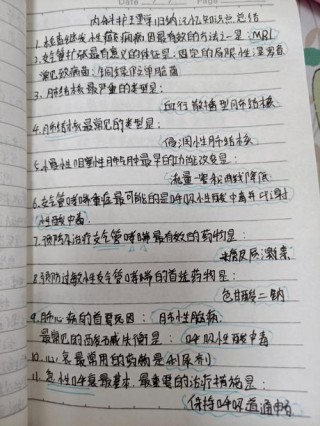 Date Page
内科护理学归纳记忆知识点总结
1.检查继发性癫痫病因最有效的方法之一是:MRI
2.支气管扩张最有意义的体征是:固定的局限性湿罗音
常见致病菌:铜绿假单胞菌
3.肺结核最严重的类型是:
血行播散型肺结核
4.肺结核最常见的类型是:
浸润性肺结核
5.慢性阻塞性肺气肿最早的功能改变是:
流量-容积曲线降低
6.支气管哮喘重症最可能的是呼吸性酸中毒并代谢
性酸中毒
7.预防及治疗支气管哮喘最有效的药物是:
糖皮质激素
8.预防过敏性支气管哮喘的首选药物是:
色甘酸二钠
9.肺心病的首要死因:肺性脑病
最常见的酸碱失衡是:呼吸性酸中毒
10.心衰最常用的药物是利尿剂
11.急性呼衰最基本、最重要的治疗措施是:
保持呼吸道通畅